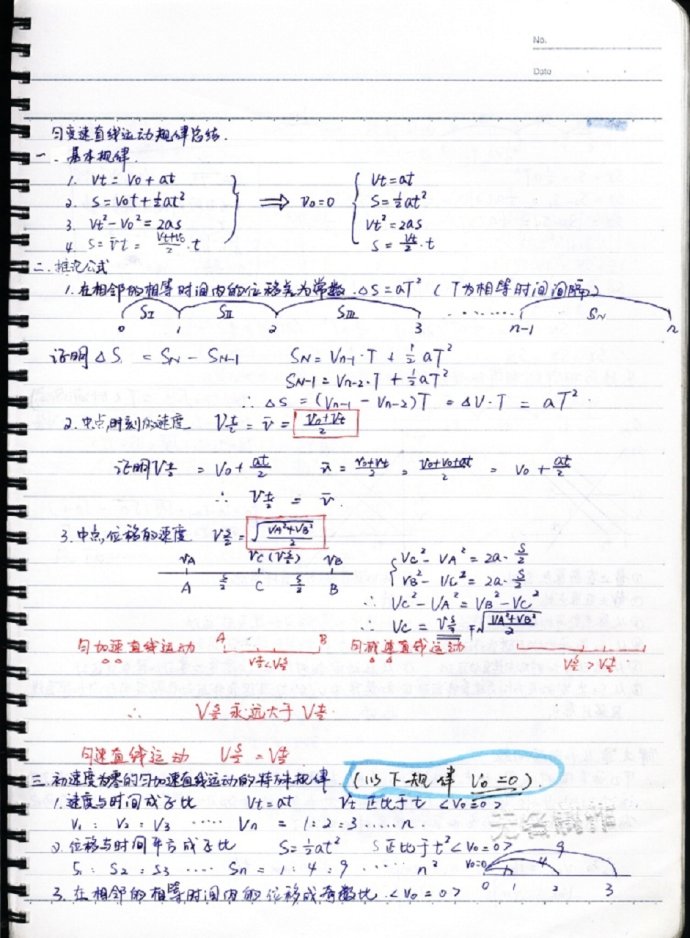 No.
Date
匀变速直线运动规律总结.
一. 基本规律.
1. Vt = V0 + at
2. S = V0t + ½at²
3. Vt² - V0² = 2as
4. S = v̄t = (Vt+V0)/2 · t
⟹ V0=0
Vt = at
S = ½at²
Vt² = 2as
S = Vt/2 · t
二. 推论公式
1. 在相邻的相等时间内的位移差为常数. ΔS = aT² (T为相等时间间隔)
SⅠ SⅡ SⅢ ······ SN
0 1 2 3 n-1 n
证明 ΔS = SN - SN-1 SN = Vn-1·T + ½aT²
SN-1 = Vn-2·T + ½aT²
∴ ΔS = (Vn-1 - Vn-2)T = ΔV·T = aT²
2. 中点时刻的速度 Vt/2 = v̄ = (V0+Vt)/2
证明 Vt/2 = V0 + at/2 v̄ = (V0+Vt)/2 = (V0+V0+at)/2 = V0 + at/2
∴ Vt/2 = v̄.
3. 中点位移的速度 Vs/2 = √((VA²+VB²)/2)
VA VC(Vs/2) VB
A S/2 C S/2 B
VC² - VA² = 2a·S/2
VB² - VC² = 2a·S/2
∴ VC² - VA² = VB² - VC²
∴ VC = Vs/2 = √((VA²+VB²)/2)
匀加速直线运动 A B 匀减速直线运动
Vt/2 < Vs/2 Vs/2 > Vt/2
∴ Vs/2 永远大于 Vt/2.
匀速直线运动 Vs/2 = Vt/2
三. 初速度为零的匀加速直线运动的特殊规律. (以下规律 V0=0).
1. 速度与时间成正比 Vt = at Vt 正比于 t <V0=0>
V1 : V2 : V3 ····· Vn = 1 : 2 : 3 ····· n.
2. 位移与时间平方成正比 S = ½at² S正比于t² <V0=0>
S1 : S2 : S3 ···· Sn = 1 : 4 : 9 ····· n²
V0=0 1 4 9
0 1 2 3
3. 在相邻的相等时间内的位移成奇数比. <V0=0>
无名製作